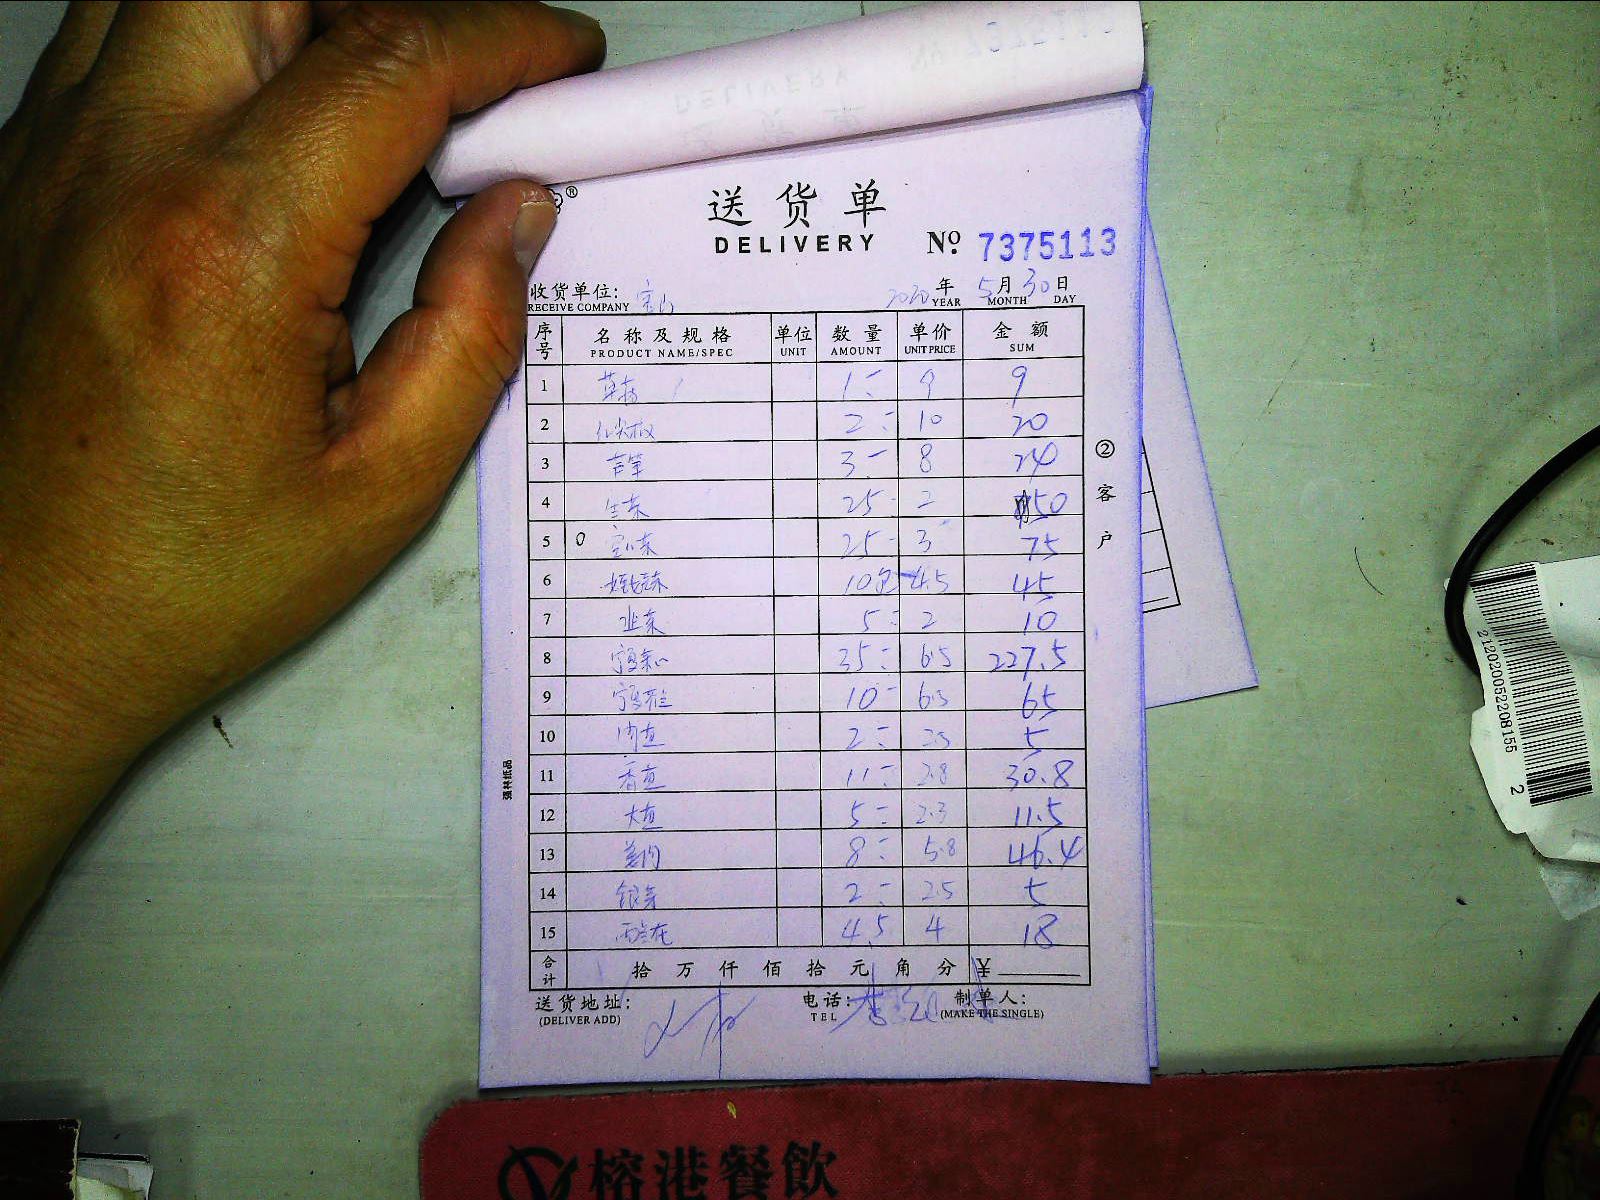 送货单
DELIVERY № 7375113
收货单位: 宝山 2020年 5月 30日
RECEIVE COMPANY YEAR MONTH DAY
序号 名称及规格 单位 数量 单价 金额
PRODUCT NAME/SPEC UNIT AMOUNT UNIT PRICE SUM
1 1 9 9
2 2 10 20
3 芦笋 3 8 24
4 生菜 25 2 50
5 25 3 75
6 10包 4.5 45
7 韭菜 5 2 10
8 35 6.5 227.5
9 10 6.5 65
10 2 2.5 5
11 11 2.8 30.8
12 5 2.3 11.5
13 8 5.8 46.4
14 银芽 2 2.5 5
15 4.5 4 18
合计 拾万仟佰拾元角分 ¥
送货地址: 电话: 制单人:
(DELIVER ADD) TEL (MAKE THE SINGLE)
②客户
强林纸品
2120200522208155 2
榕港餐飲